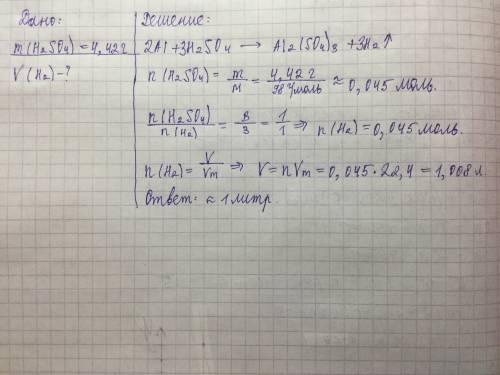 Дано:
m(H2SO4)=4,42г
V(H2)-?
Решение:
2Al+3H2SO4 → Al2(SO4)3 +3H2↑
n(H2SO4)= m/M = 4,42г/98г/моль ≈ 0,045 моль.
n(H2SO4)/n(H2) = 3/3 = 1/1 ⇒ n(H2)=0,045 моль.
n(H2)= V/Vm ⇒ V=nVm=0,045·22,4=1,008 л.
Ответ: ≈ 1 литр.